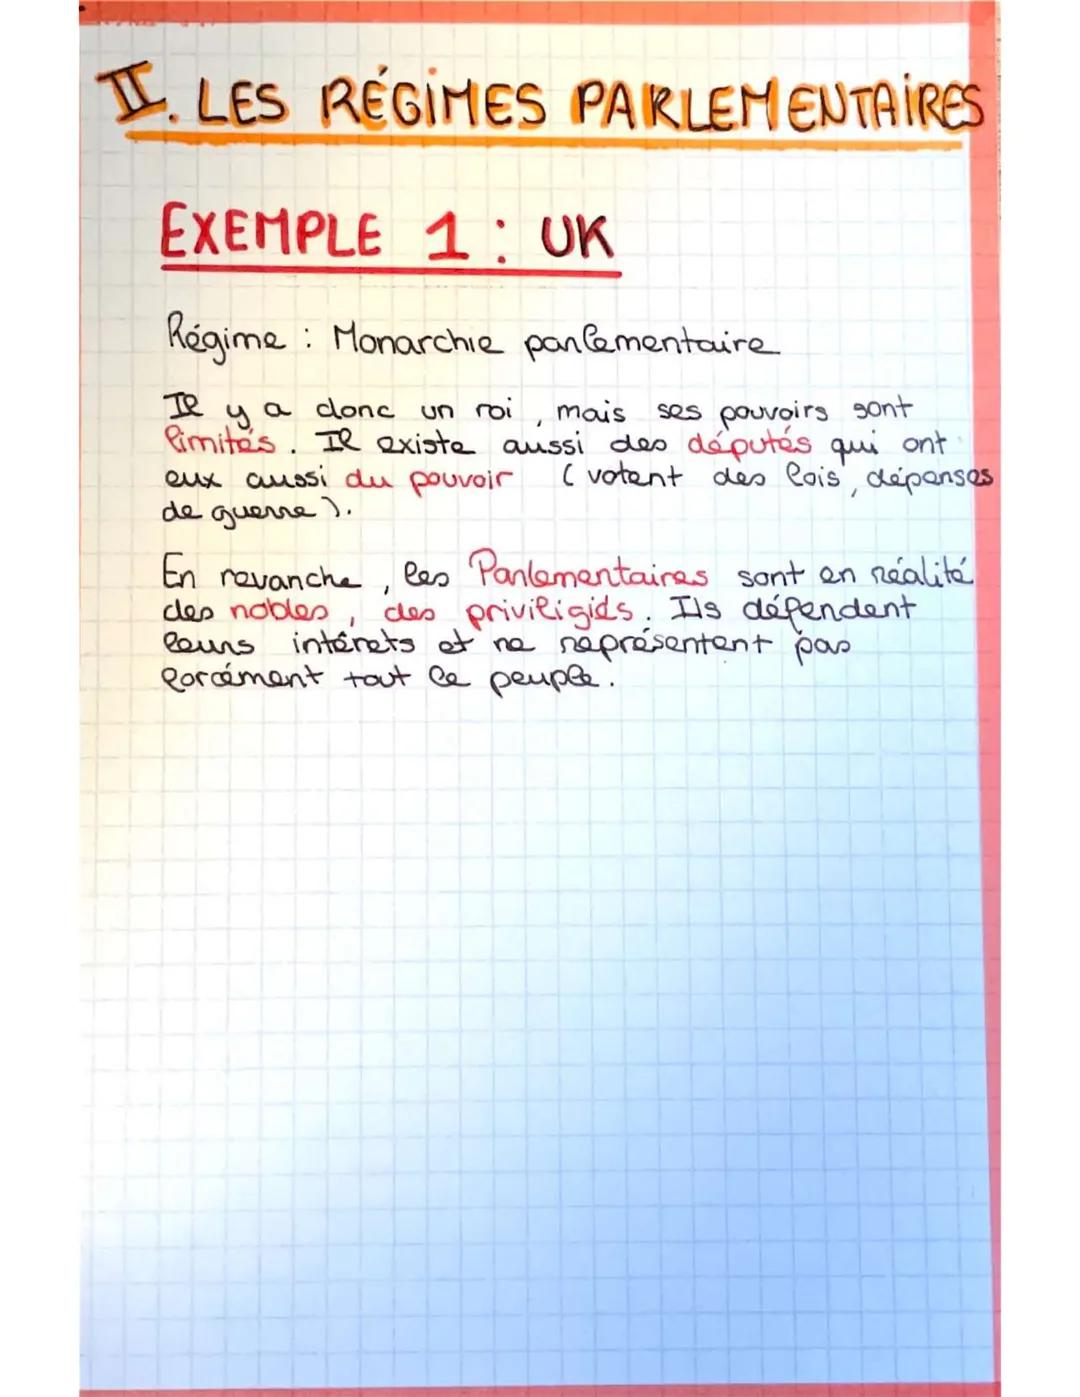 II. LES RÉGIMES PARLEMENTAIRES
EXEMPLE 1 : UK
Régime : Monarchie parlementaire
Il y a donc un roi, mais ses pouvoirs sont
limités. Il existe aussi des députés qui ont
eux aussi du pouvoir (votent des lois, dépenses
de guerre).
En revanche, les Parlementaires sont en réalité
des nobles, des priviligiés. Ils défendent
leurs intérêts et ne représentent pas
forcément tout le peuple.